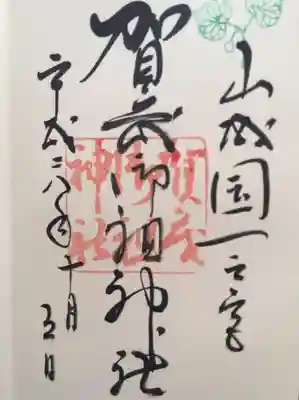 山城国一之宮
賀茂御祖神社
平成二八年十月五日
賀茂
御祖
神社